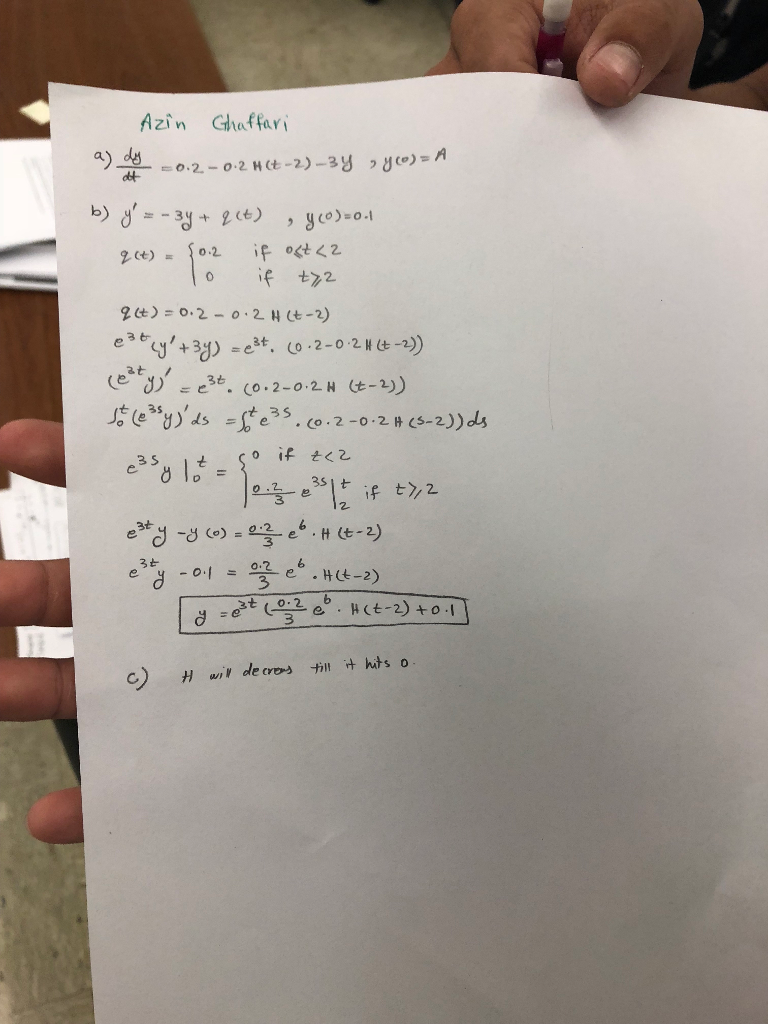 Azin Ghaffari
a) dy/dt = 0.2 - 0.2 H(t-2) - 3y , y(0) = A
b) y' = -3y + q(t) , y(0)=0.1
q(t) = { 0.2 if 0≤t<2
0 if t≥2
q(t) = 0.2 - 0.2 H(t-2)
e^{3t}(y'+3y) = e^{3t}. (0.2-0.2H(t-2))
(e^{3t}y)' = e^{3t}. (0.2-0.2H (t-2))
∫_0^t (e^{3s}y)' ds = ∫_0^t e^{3s}. (0.2-0.2H(s-2)) ds
e^{3s} y |_0^t = { 0 if t<2
0.2/3 e^{3s} |_2^t if t≥2
e^{3t}y - y(0) = 0.2/3 e^6 . H(t-2)
e^{3t}y - 0.1 = 0.2/3 e^6 . H(t-2)
y = e^{3t} (0.2/3 e^6 . H(t-2) + 0.1
c) H will decrees till it hits 0.